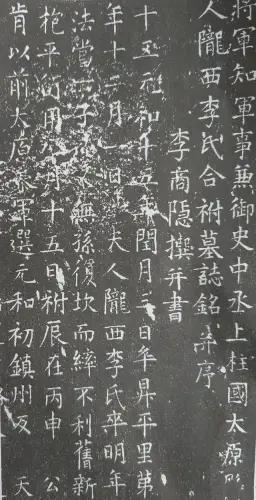 將軍知軍事兼御史中丞上柱國太原
人隴西李氏合祔墓誌銘并序
李商隱撰并書
十五元和十五年閏月三日卒昇平里第
年十二月一日夫人隴西李氏卒明年
法當子無孫復坎而繂不利舊新
平用月十五日祔辰在丙申公
肯以前太原參軍選元和初鎮州反天